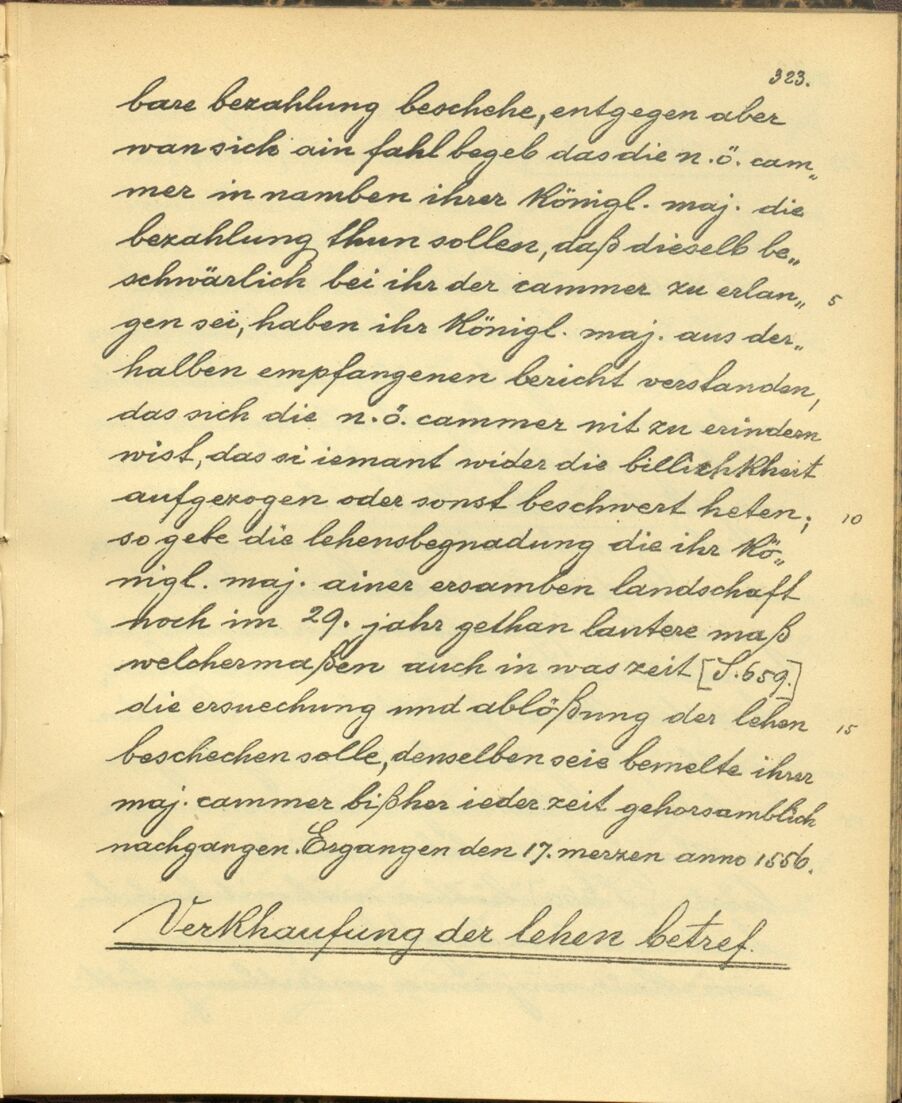 323.
bare bezahlung beschehe, entgegen aber
wan sich ain fahl begeb das die n. ö. cam„
mer in namben ihrer Königl. maj. die
bezahlung thun sollen, daß dieselb be„
schwärlich bei ihr der cammer zu erlan„ 5
gen sei, haben ihr Königl. maj. aus der„
halben empfangenen bericht verstanden,
das sich die n. ö. cammer nit zu erindern
wist, das si iemant wider die billichkheit
aufgezogen oder sonst beschwert heten; 10
so gebe die lehensbegnadung die ihr Kö„
nigl. maj. ainer ersamben landschaft
noch im 29. jahr gethan lautere maß
welchermaßen auch in was zeit [S. 659.]
die ersuechung und ablößung der lehen 15
beschechen solle, denselben seie bemelte ihrer
maj. cammer bißher ieder zeit gehorsamblich
nachgangen. Ergangen den 17. merzen anno 1556.
Verkhaufung der lehen betref.